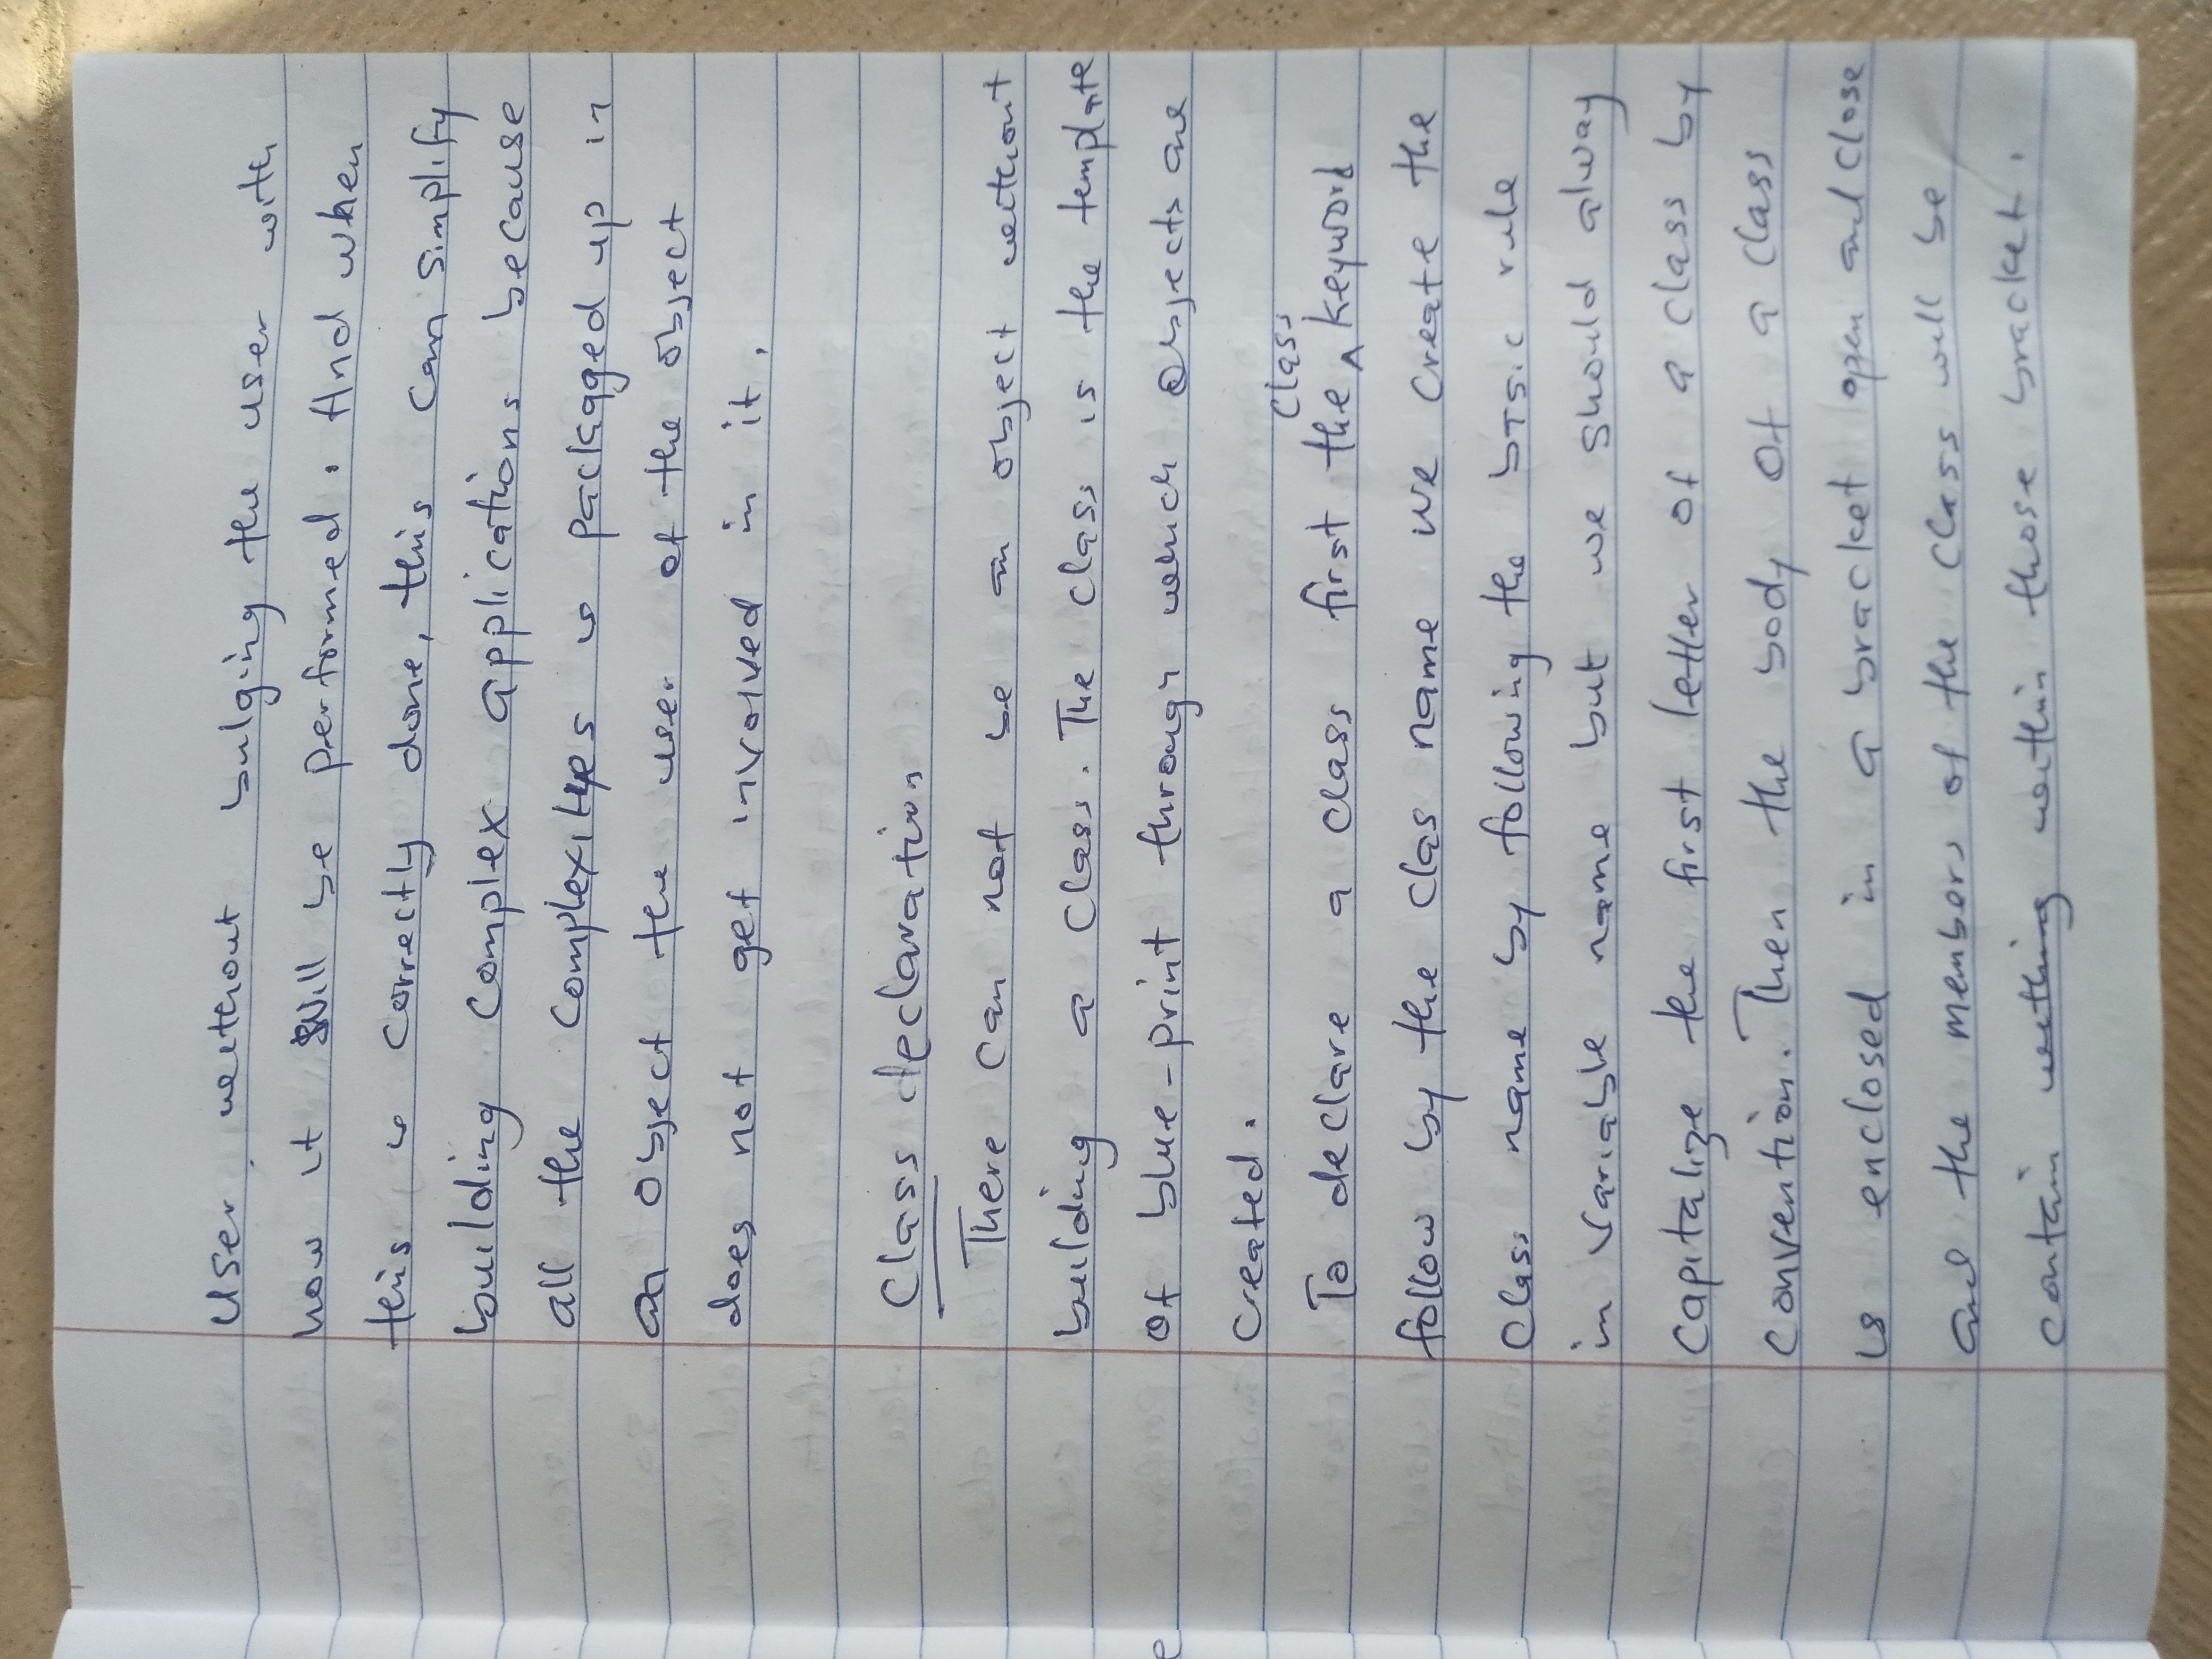 User without bulging the user with
how it will be performed. And when
this is correctly done, this can simplify
building complex applications because
all the complexityes is packaged up in
an object the user of the object
does not get involved in it.
Class declaration
There can not be an object without
building a class. The class is the template
of blue-print through which objects are
created.
To declare a class first the class keyword
follow by the clas name we create the
class name by following the basic rule
in variable name but we should alway
capitalize the first letter of a class by
convention. Then the body of a class
is enclosed in a bracket open and close
and the members of the class will be
contain within those bracket.